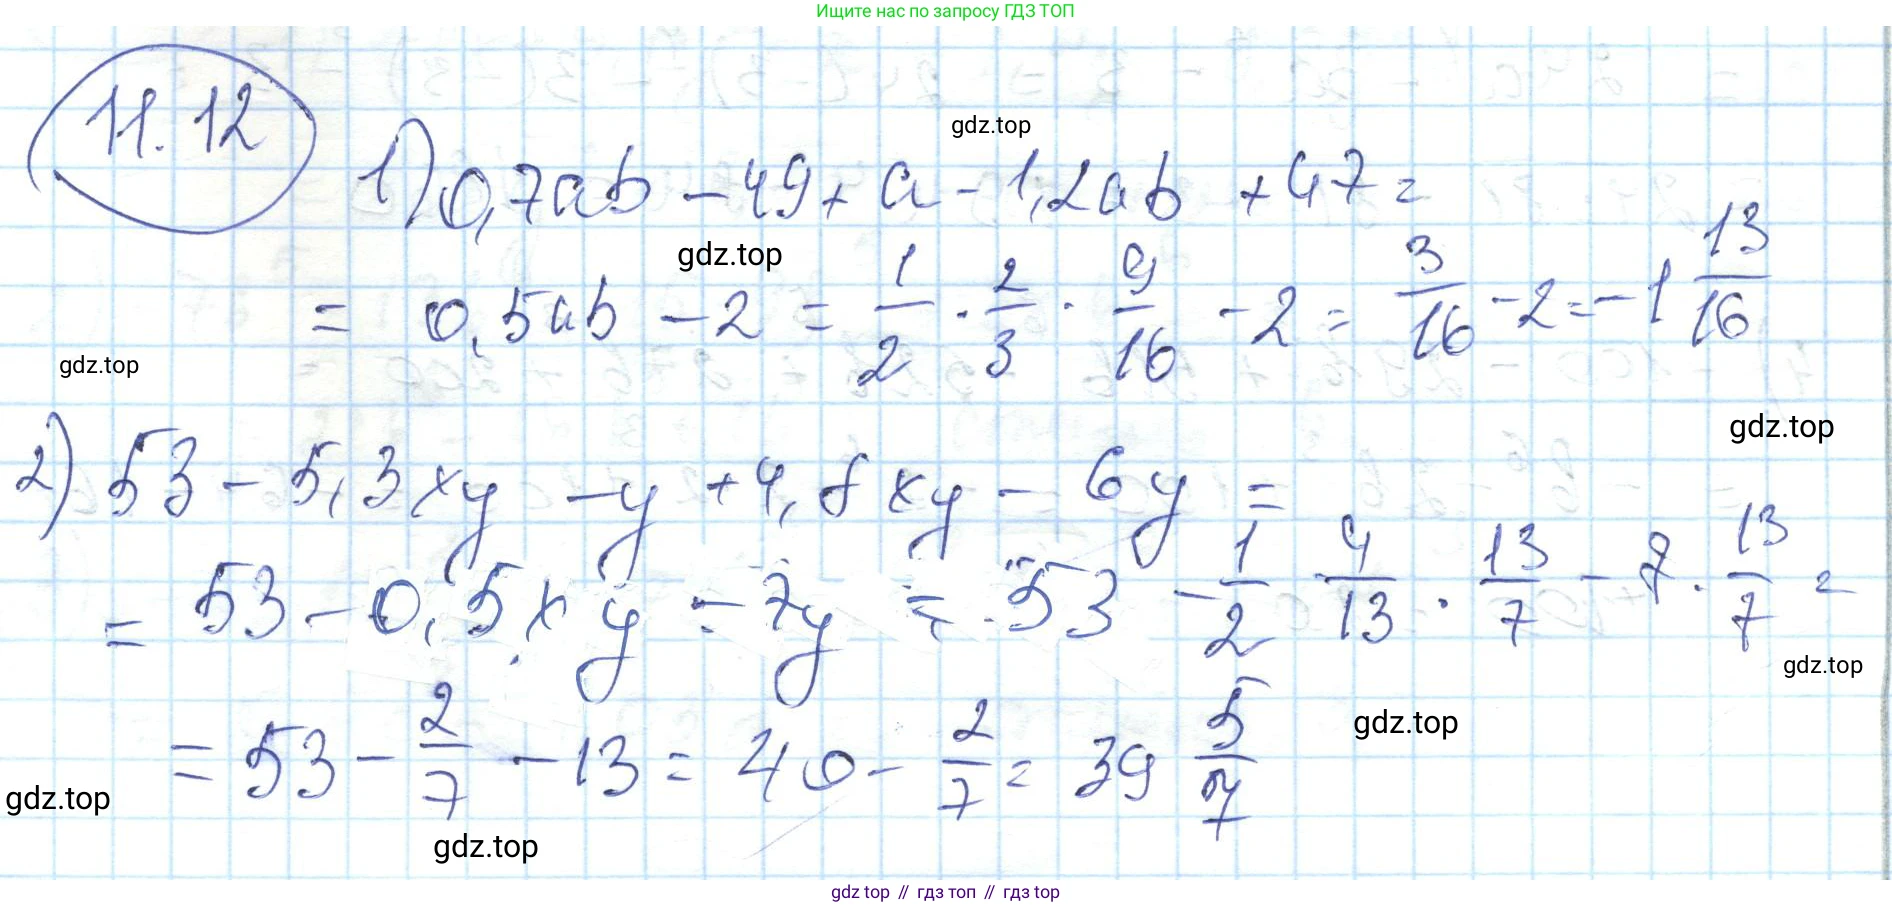 Ищите нас по запросу ГДЗ ТОП
11.12
gdz.top
1) 0,7ab - 49 + a - 1,2ab + 47 =
gdz.top
= 0,5ab - 2 = 1/2 · 2/3 · 9/16 - 2 = 3/16 - 2 = -1 13/16
gdz.top
gdz.top
2) 53 - 5,3xy - y + 4,8xy - 6y =
= 53 - 0,5xy - 7y = 53 - 1/2 · 4/13 · 13/7 - 7 · 13/7 =
gdz.top
gdz.top
= 53 - 2/7 - 13 = 40 - 2/7 = 39 5/7
gdz.top
gdz.top
gdz top // гдз топ // гдз top